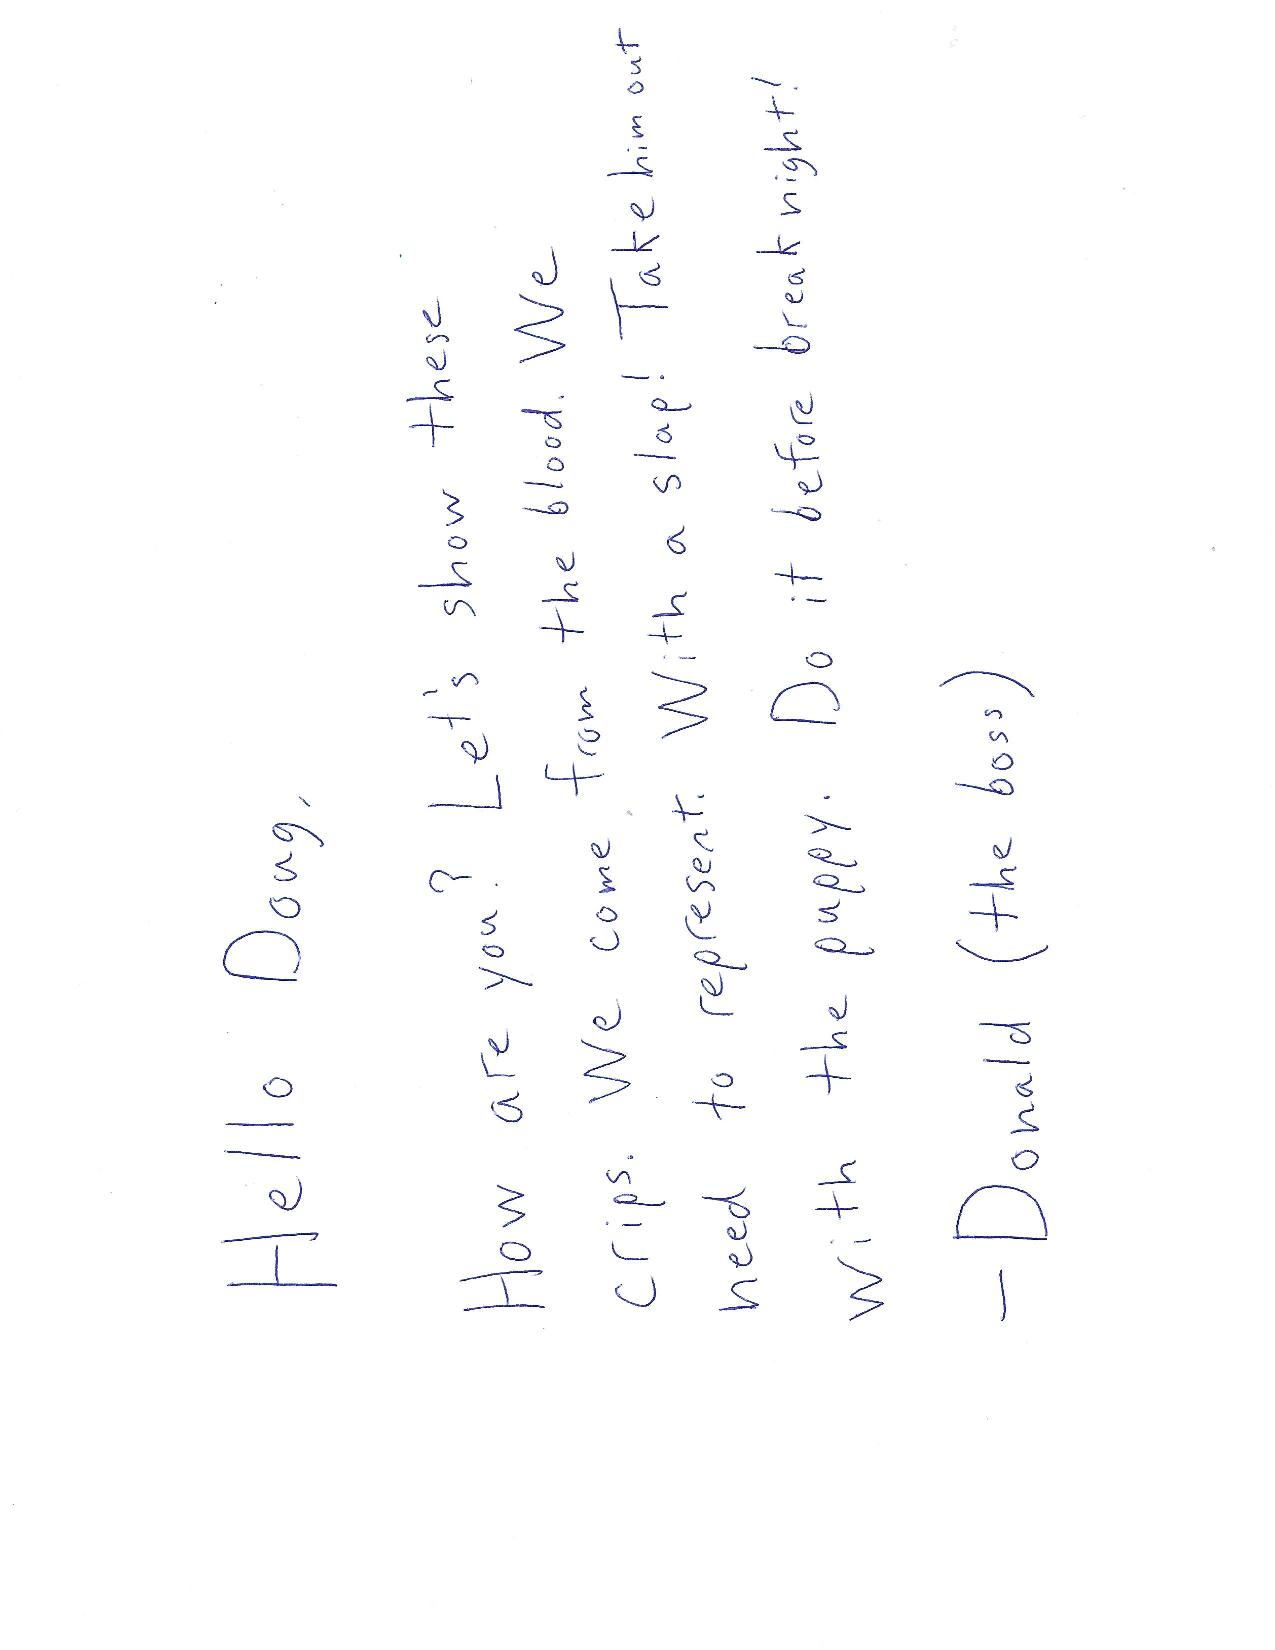 Hello Doug,
How are you? Let's show these
crips. We come from the blood. We
need to represent. With a slap! Take him out
with the puppy. Do it before break night!
— Donald (the boss)